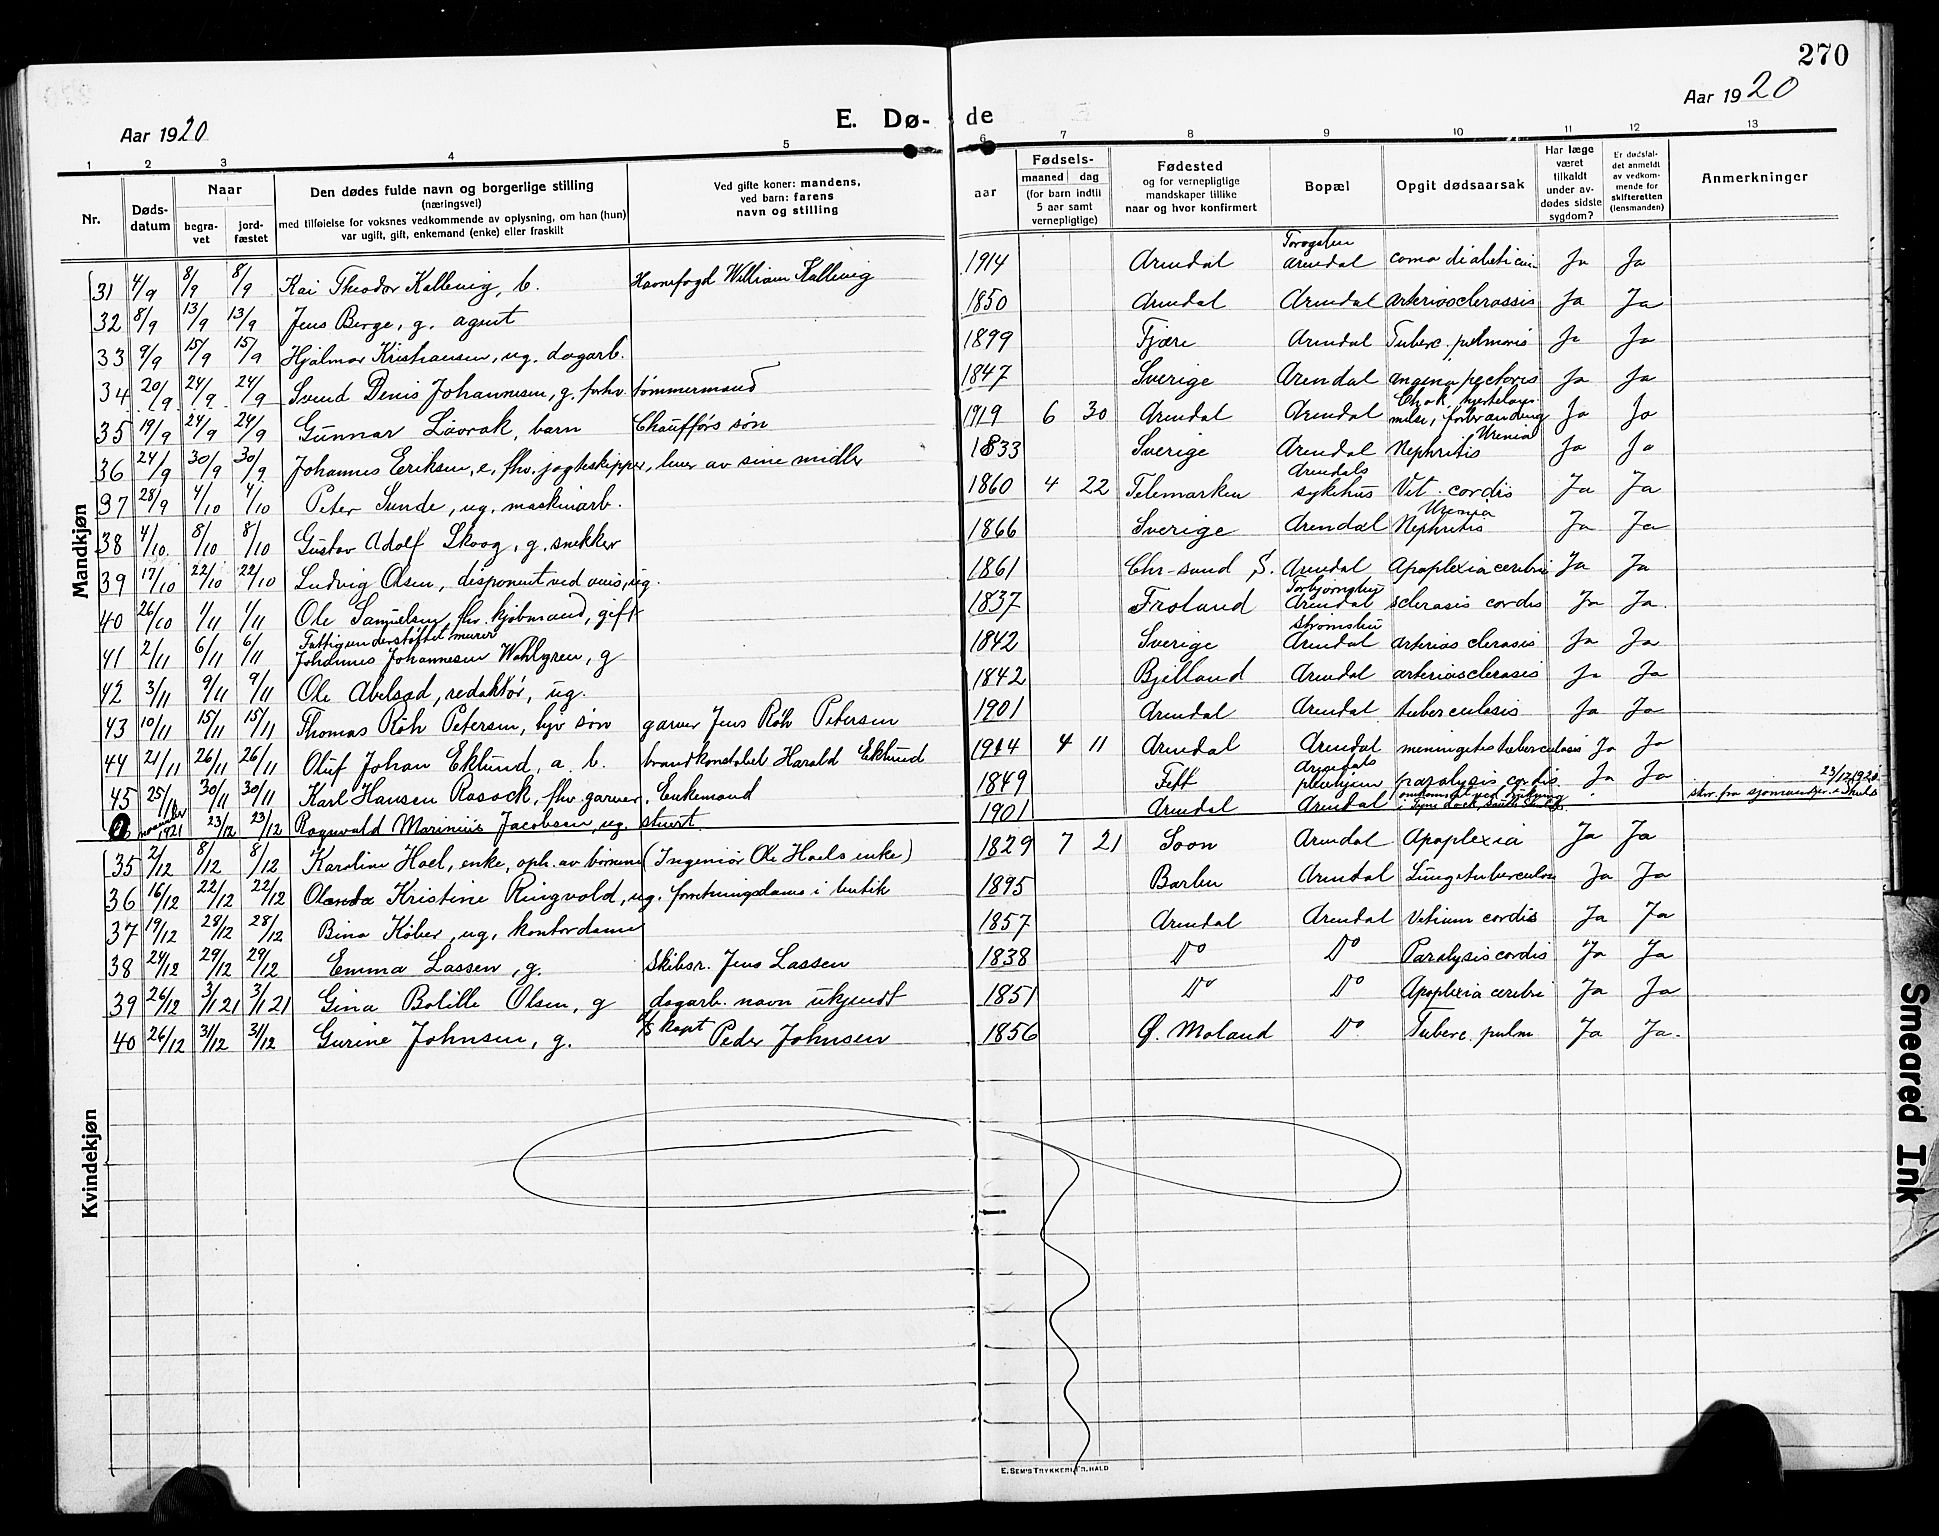 270
Aar 1920
E. Dø- de
Aar 1920
1 2 3 4 5 6 7 8 9 10 11 12 13
Nr.
Dødsdatum
Naar
begravet
jordfæstet
Den dødes fulde navn og borgerlige stilling
(næringsvei)
med tilføielse for voksnes vedkommende av oplysning, om han (hun)
var ugift, gift, enkemand (enke) eller fraskilt
Ved gifte koner: mandens,
ved barn: farens
navn og stilling
Fødsels-
aar
maaned dag
(for barn indtil
5 aar samt
vernepligtige)
Fødested
og for vernepligtige
mandskaper tillike
naar og hvor konfirmert
Bopæl
Opgit dødsaarsak
Har læge
været
tilkaldt
under av-
dødes sidste
sygdom?
Er dødsfal-
det anmeldt
av vedkom-
mende for
skifteretten
(lensmanden)
Anmerkninger
Mandkjøn
31 4/9 8/9 8/9 Kai Theodor Kallevig, b. Havnefogd William Kallevig 1914 Arendal Arendal coma diabeticum Ja Ja
32 8/9 13/9 13/9 Jens Berge, g. agent 1850 Arendal Arendal arteriosclerossis Ja Ja
33 9/9 15/9 15/9 Hjalmar Kristiansen, ug. dagarb. 1899 Fjære Arendal Tuberc. pulmonis Ja Ja
34 20/9 24/9 24/9 Svend Denis Johannesen, g. forhv. tømmermand 1847 Sverige Arendal angina pectoris Ja Ja
35 19/9 24/9 24/9 Gunnar Laavak, barn Chaufførs søn 1919 6 30 Arendal Arendal Chok, hjertelam-
melse, forbrænding Ja Ja
36 24/9 30/9 30/9 Johannes Eriksen, e, fhv. jagteskipper, lever av sine midler 1833 Sverige Arendal Uremia
Nephritis Ja Ja
37 28/9 4/10 4/10 Peter Sunde, ug, maskinarb. 1860 4 22 Telemarken Arendals
sykehus Vit. cordis Ja Ja
38 4/10 8/10 8/10 Gustav Adolf Skoog, g. snekker 1866 Sverige Arendal Uremia
Nephritis Ja Ja
39 17/10 22/10 22/10 Ludvig Olsen, disponent ved avis, ug. 1861 Chr-sund, S. Arendal Apoplexia cerebri Ja Ja
40 26/10 1/11 1/11 Ole Samuelsen, fhv. kjøbmand, gift 1837 Froland Torbjørnsbu
Arendal sclerosis cordis Ja Ja.
41 2/11 6/11 6/11 Fattigunderstøttet murer
Johannes Johannesen Wahlgren, g 1842 Sverige Strømsbu
Arendal arteriosclerosis Ja Ja
42 3/11 9/11 9/11 Ole Abelsæd, redaktør, ug. 1842 Bjelland Arendal arteriosclerosis Ja Ja
43 10/11 15/11 15/11 Thomas Röh Petersen, hjv søn garver Jens Röh Petersen 1901 Arendal Arendal tuberculosis Ja Ja
44 21/11 26/11 26/11 Oluf Johan Eklund, a. b. brandkonstabel Harald Eklund 1914 4 11 Arendal Arendal meningitis tuberculosis Ja Ja
45 25/11 30/11 30/11 Karl Hansen Rasock, fhv. garver, Enkemand 1849 Arendals
pleiehjem paralysis cordis Ja Ja
november
1921 23/12 23/12 Ragnvald Marinius Jacobsen, ug. stuert. 1901 Arendal Arendal omkommet ved drukning 23/12 1920
Kvindekjøn
35 2/12 8/12 8/12 Karoline Hoel, enke, oph. av børnene (Ingeniør Ole Hoels enke) 1829 7 21 Soon Arendal Apoplexia Ja Ja
36 16/12 22/12 22/12 Olanda Kristine Ringvold, ug. forretningsdame i butik 1895 Barbu Arendal Lungetuberculose Ja Ja
37 19/12 28/12 28/12 Bina Køber, ug, kontordame 1857 Arendal Arendal Vitium cordis Ja Ja
38 24/12 29/12 29/12 Emma Lassen, g. skibsr. Jens Lassen 1838 Do Do Paralysis cordis Ja Ja
39 26/12 3/1 21 3/1 21 Gina Bolille Olsen, g dagarb. navn ukjendt 1851 Do Do Apoplexia cerebri Ja Ja
40 26/12 31/12 31/12 Gurine Johnsen, g. D/s kapt Peder Johnsen 1856 Ø. Moland Do Tuberc. pulm Ja Ja.
E. SEM'S TRYKKERI, FR.HALD
Smeared Ink